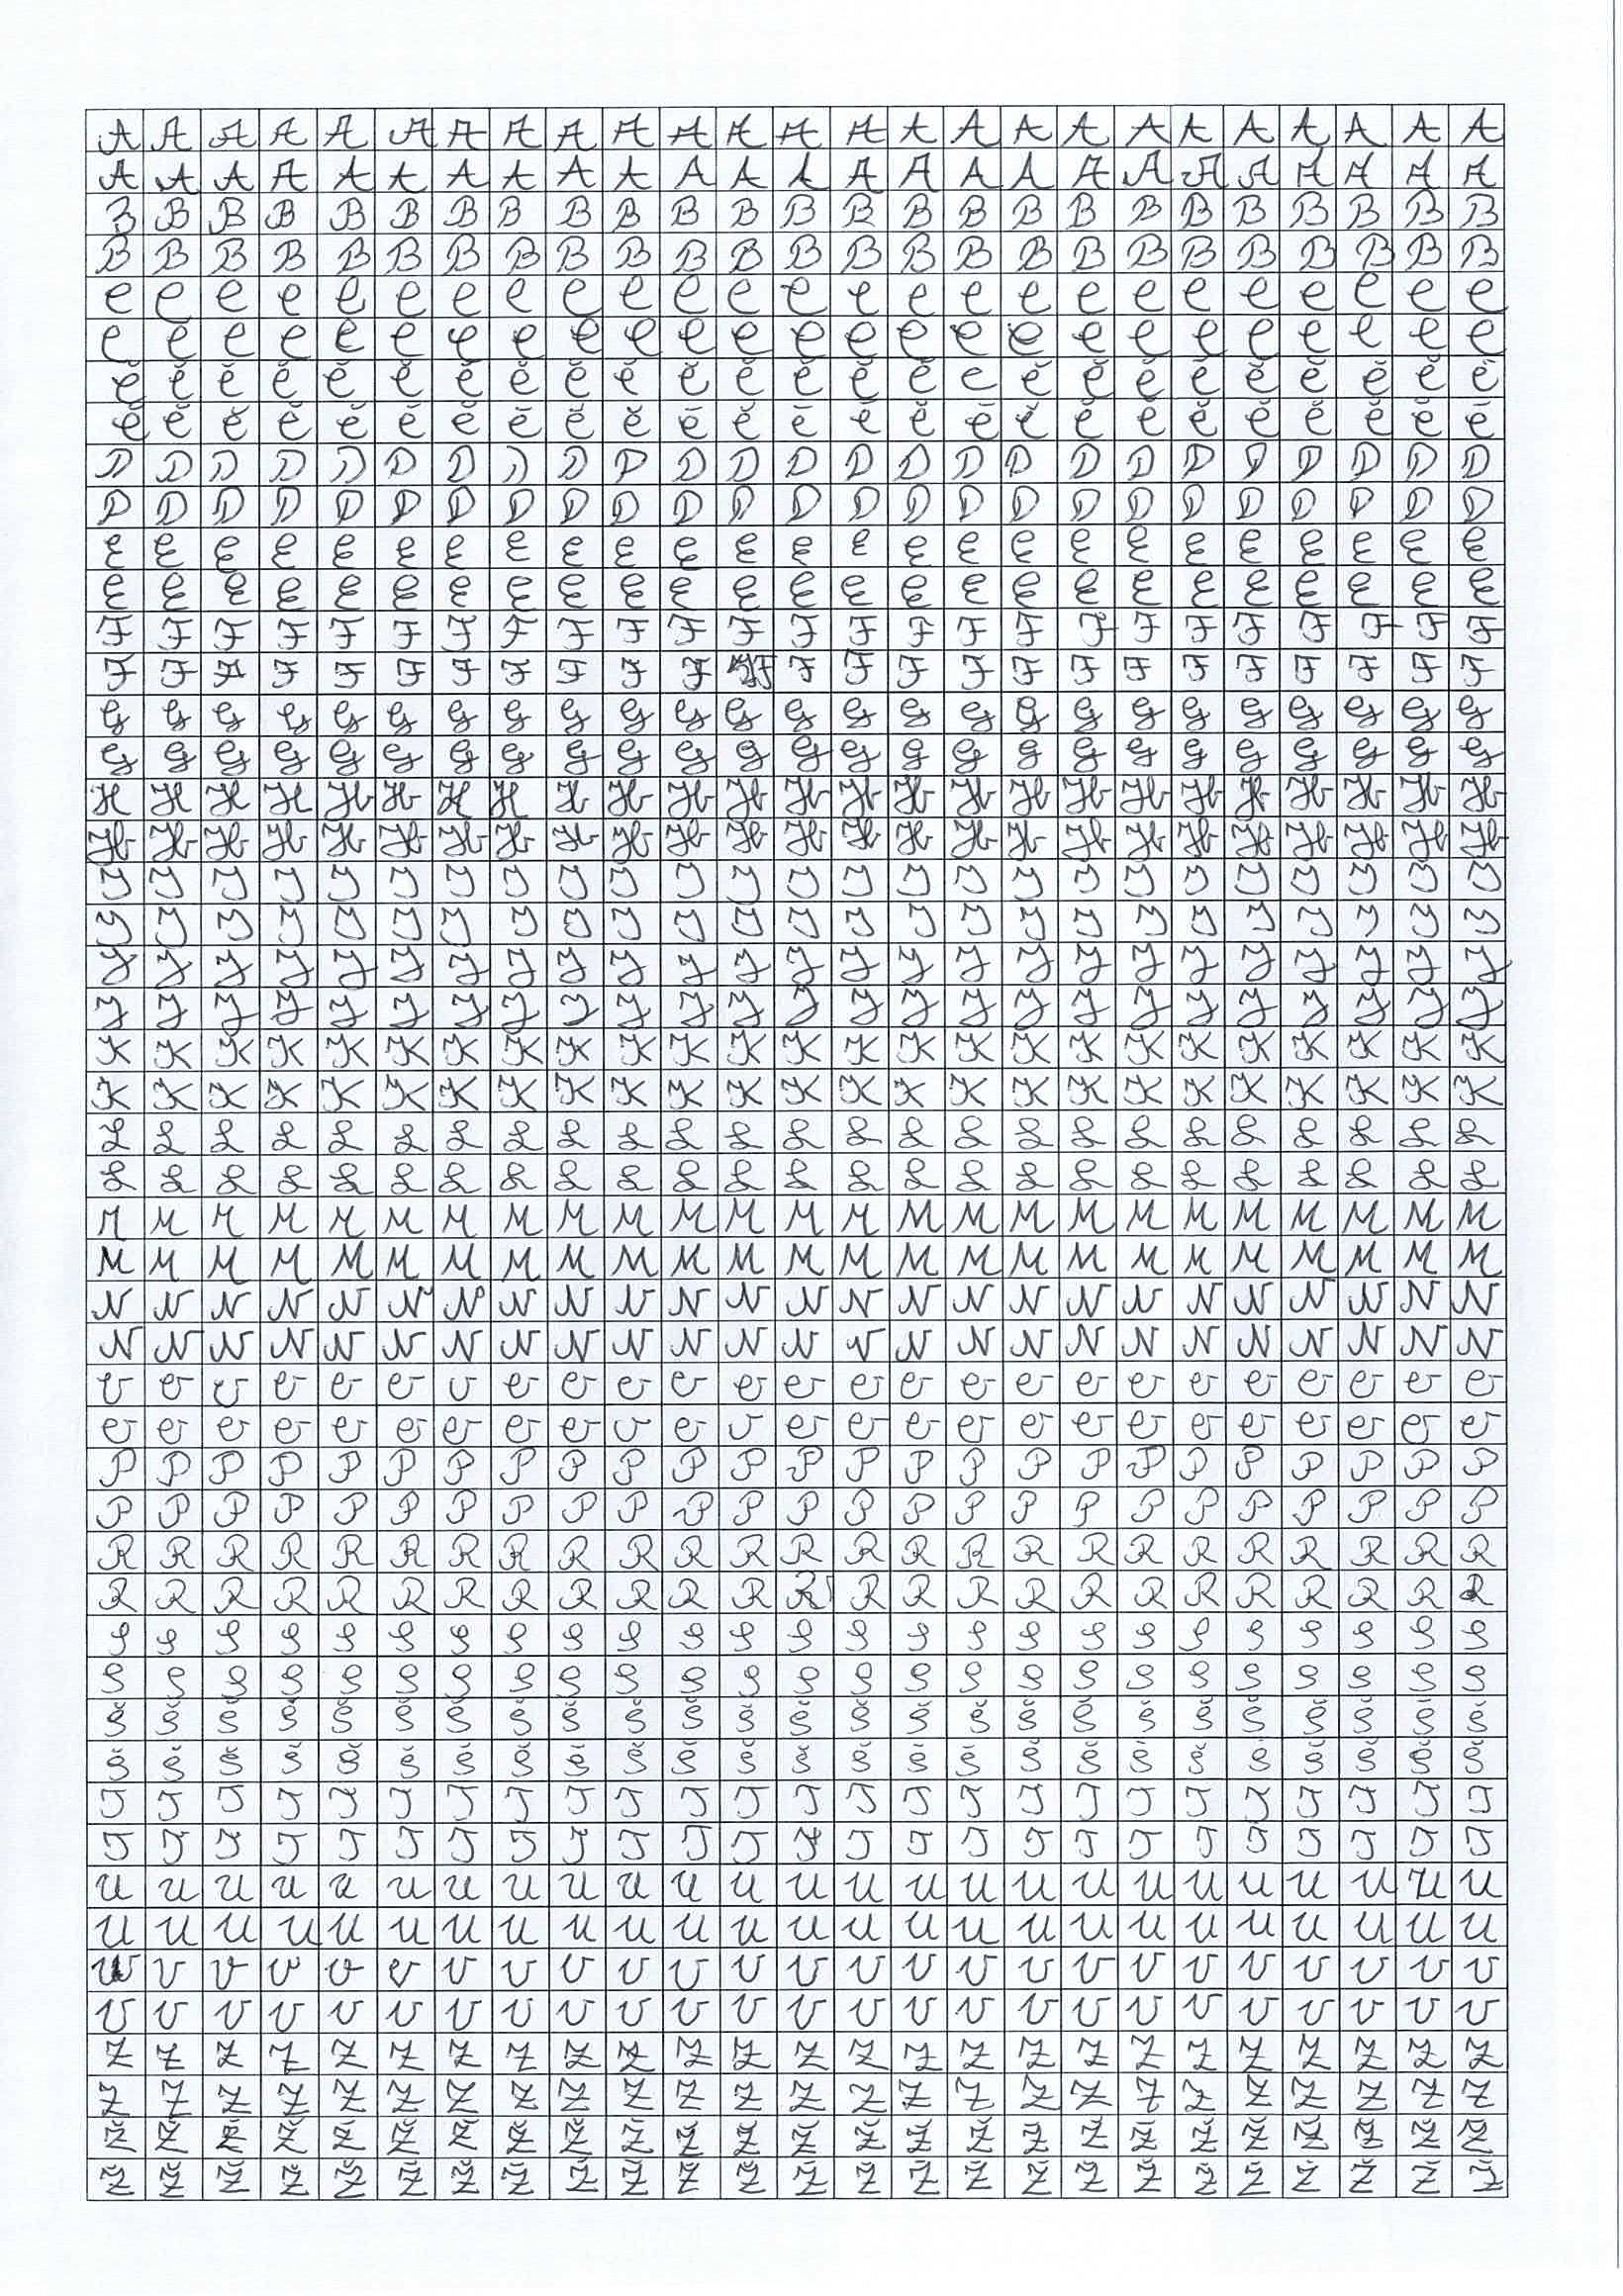 A A A A A A A A A A A A A A A A A A A A A A A A A
A A A A A A A A A A A A A A A A A A A A A A A A A
B B B B B B B B B B B B B B B B B B B B B B B B B
B B B B B B B B B B B B B B B B B B B B B B B B B
C C C C C C C C C C C C C C C C C C C C C C C C C
C C C C C C C C C C C C C C C C C C C C C C C C C
Č Č Č Č Č Č Č Č Č Č Č Č Č Č Č Č Č Č Č Č Č Č Č Č Č
Č Č Č Č Č Č Č Č Č Č Č Č Č Č Č Č Č Č Č Č Č Č Č Č Č
D D D D D D D D D D D D D D D D D D D D D D D D D
D D D D D D D D D D D D D D D D D D D D D D D D D
E E E E E E E E E E E E E E E E E E E E E E E E E
E E E E E E E E E E E E E E E E E E E E E E E E E
F F F F F F F F F F F F F F F F F F F F F F F F F
F F F F F F F F F F F F F F F F F F F F F F F F F
G G G G G G G G G G G G G G G G G G G G G G G G G
G G G G G G G G G G G G G G G G G G G G G G G G G
H H H H H H H H H H H H H H H H H H H H H H H H H
H H H H H H H H H H H H H H H H H H H H H H H H H
I I I I I I I I I I I I I I I I I I I I I I I I I
I I I I I I I I I I I I I I I I I I I I I I I I I
J J J J J J J J J J J J J J J J J J J J J J J J J
J J J J J J J J J J J J J J J J J J J J J J J J J
K K K K K K K K K K K K K K K K K K K K K K K K K
K K K K K K K K K K K K K K K K K K K K K K K K K
L L L L L L L L L L L L L L L L L L L L L L L L L
L L L L L L L L L L L L L L L L L L L L L L L L L
M M M M M M M M M M M M M M M M M M M M M M M M M
M M M M M M M M M M M M M M M M M M M M M M M M M
N N N N N N N N N N N N N N N N N N N N N N N N N
N N N N N N N N N N N N N N N N N N N N N N N N N
O O O O O O O O O O O O O O O O O O O O O O O O O
O O O O O O O O O O O O O O O O O O O O O O O O O
P P P P P P P P P P P P P P P P P P P P P P P P P
P P P P P P P P P P P P P P P P P P P P P P P P P
R R R R R R R R R R R R R R R R R R R R R R R R R
R R R R R R R R R R R R R R R R R R R R R R R R R
S S S S S S S S S S S S S S S S S S S S S S S S S
S S S S S S S S S S S S S S S S S S S S S S S S S
Š Š Š Š Š Š Š Š Š Š Š Š Š Š Š Š Š Š Š Š Š Š Š Š Š
Š Š Š Š Š Š Š Š Š Š Š Š Š Š Š Š Š Š Š Š Š Š Š Š Š
T T T T T T T T T T T T T T T T T T T T T T T T T
T T T T T T T T T T T T T T T T T T T T T T T T T
U U U U U U U U U U U U U U U U U U U U U U U U U
U U U U U U U U U U U U U U U U U U U U U U U U U
V V V V V V V V V V V V V V V V V V V V V V V V V
V V V V V V V V V V V V V V V V V V V V V V V V V
Z Z Z Z Z Z Z Z Z Z Z Z Z Z Z Z Z Z Z Z Z Z Z Z Z
Z Z Z Z Z Z Z Z Z Z Z Z Z Z Z Z Z Z Z Z Z Z Z Z Z
Ž Ž Ž Ž Ž Ž Ž Ž Ž Ž Ž Ž Ž Ž Ž Ž Ž Ž Ž Ž Ž Ž Ž Ž Ž
Ž Ž Ž Ž Ž Ž Ž Ž Ž Ž Ž Ž Ž Ž Ž Ž Ž Ž Ž Ž Ž Ž Ž Ž Ž